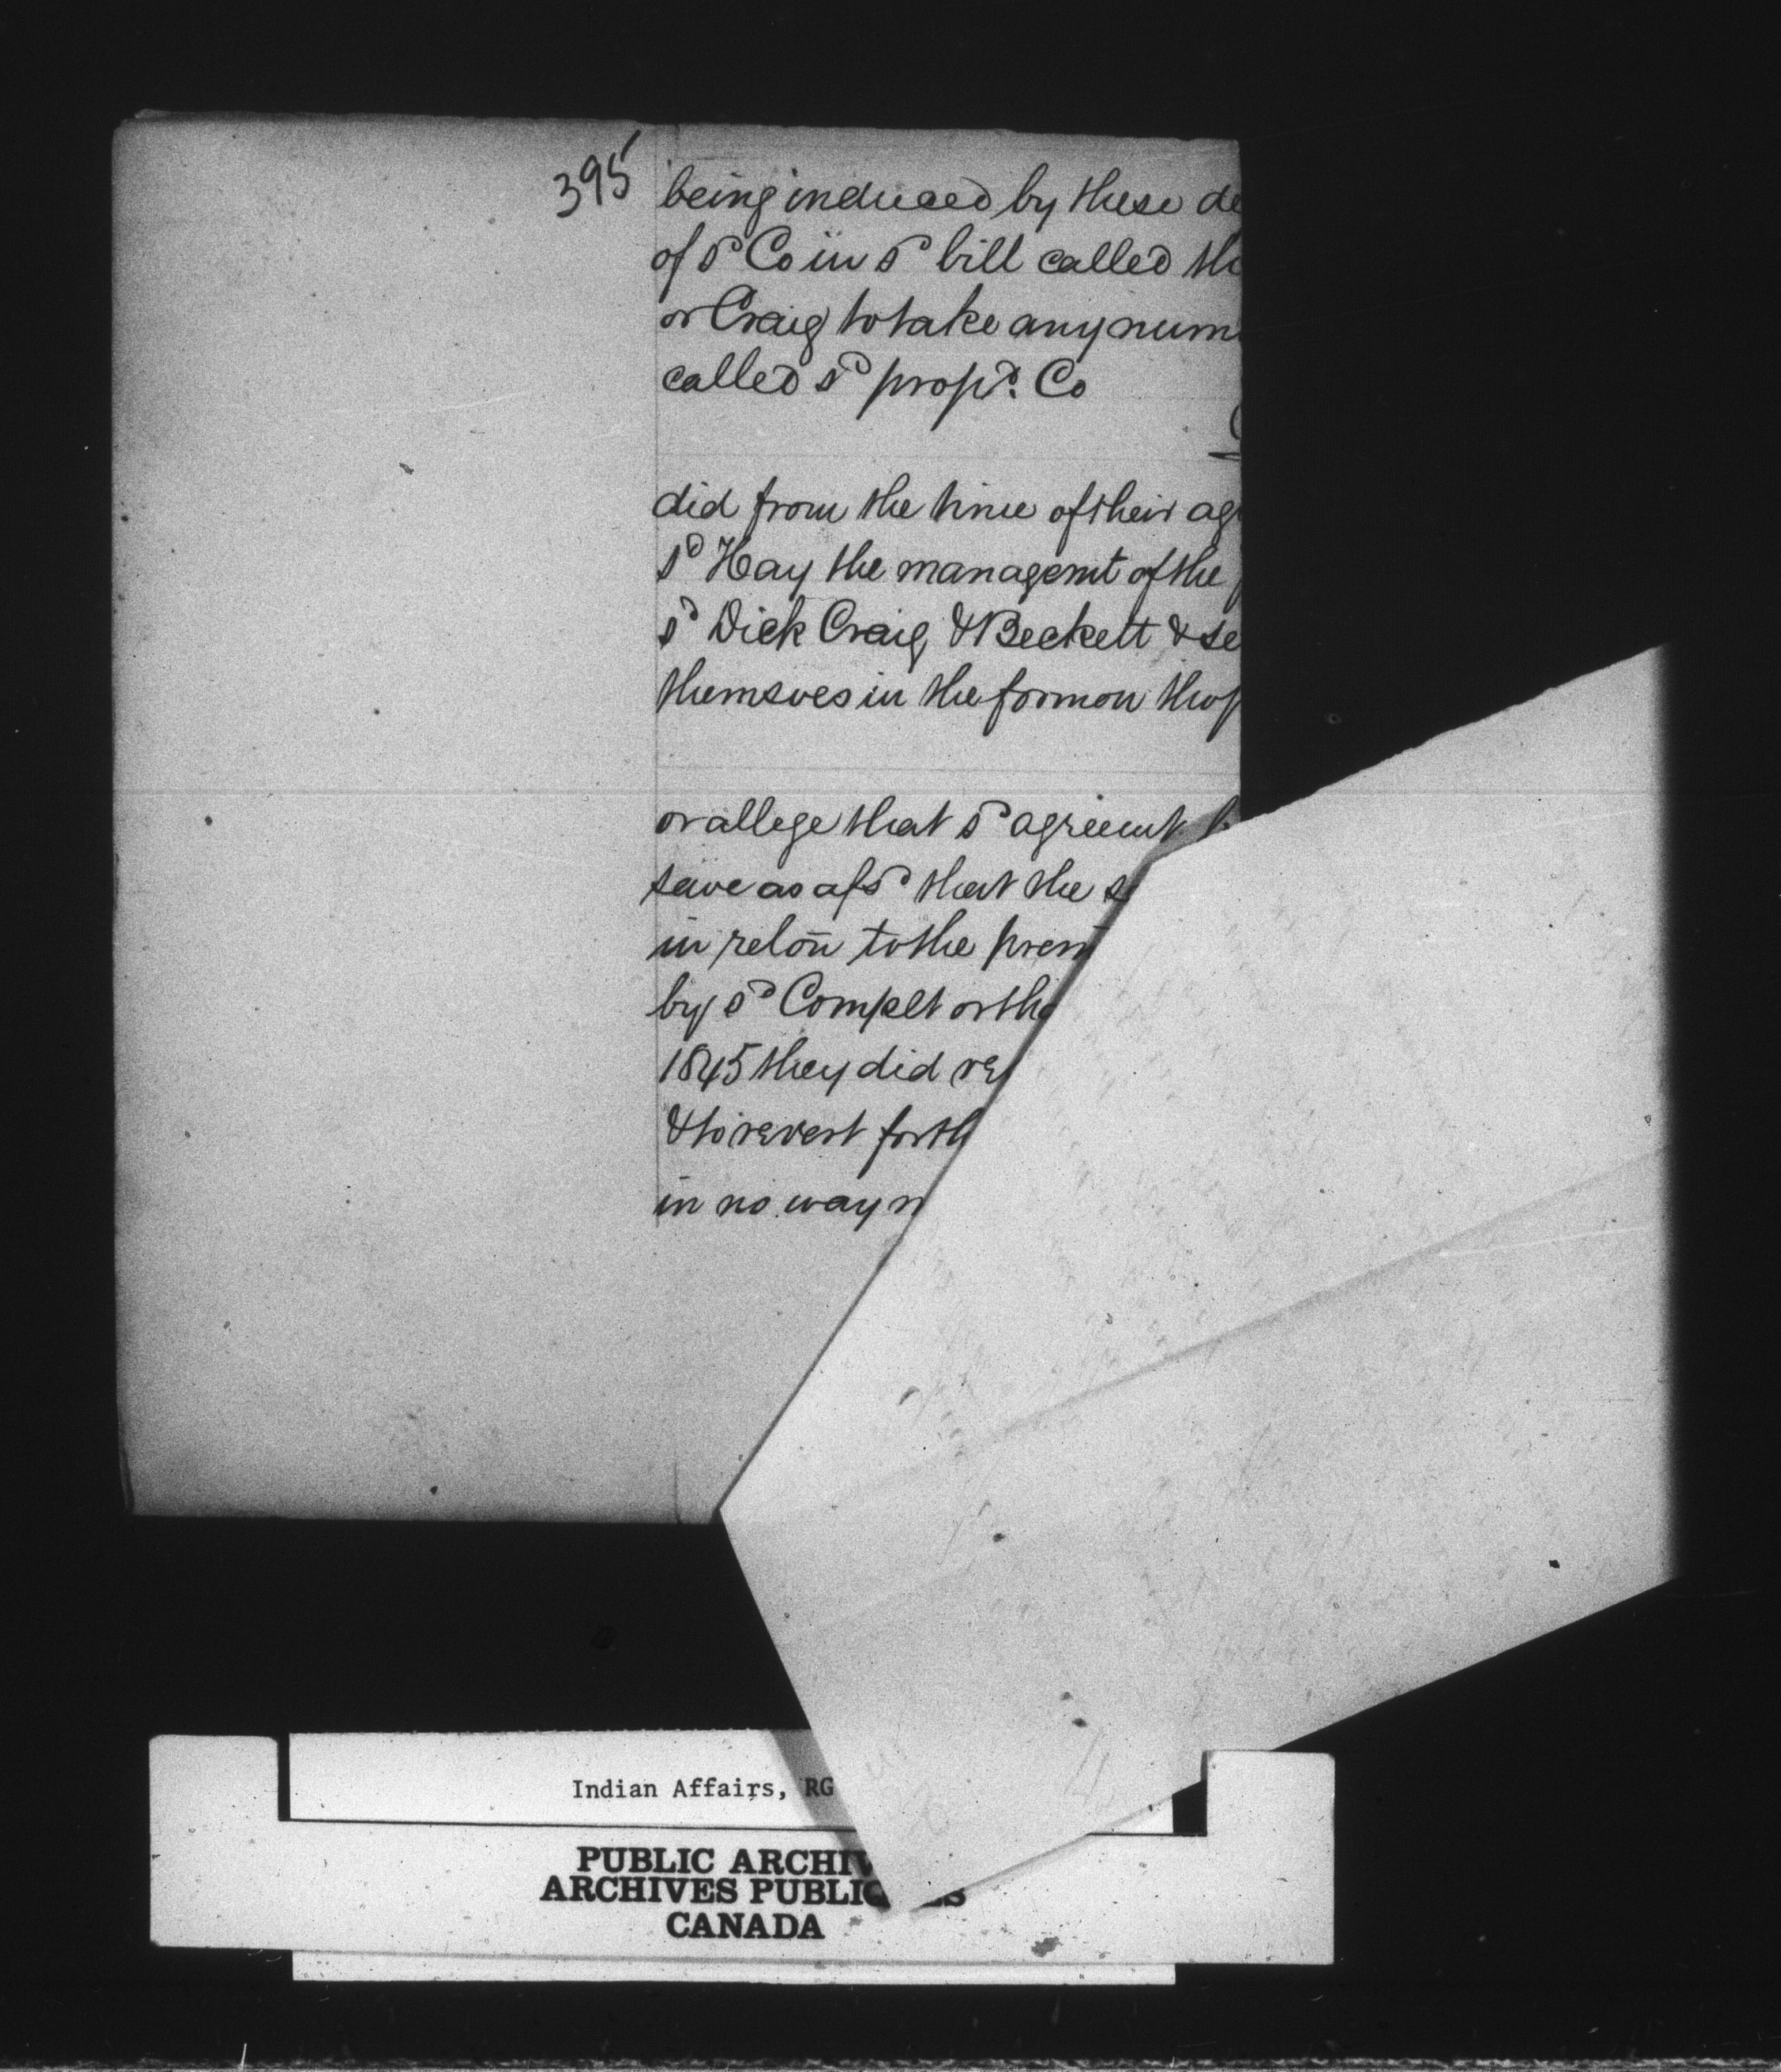 395
being induced by these de
of sd Co in sd bill called the
or Craig to take any num
called sd propd. Co
did from the time of their ag
sd Hay the managemt of the
sd Dick Craig & Beckett & se
themsves in the formon thof
or allege that sd agreemt
save as afsd that the s
in relon to the presnt
by sd Complt or the
1845 they did re
& to revert forth
in no way n
Indian Affairs, RG
PUBLIC ARCHIV
ARCHIVES PUBLIQ ES
CANADA